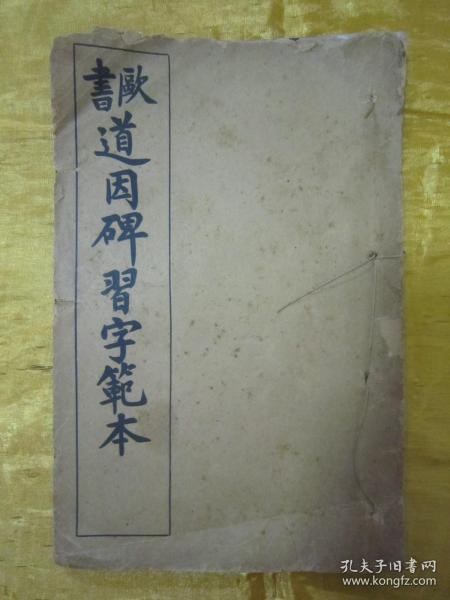 歐書道因碑習字範本
孔夫子旧书网
www.kongfz.com